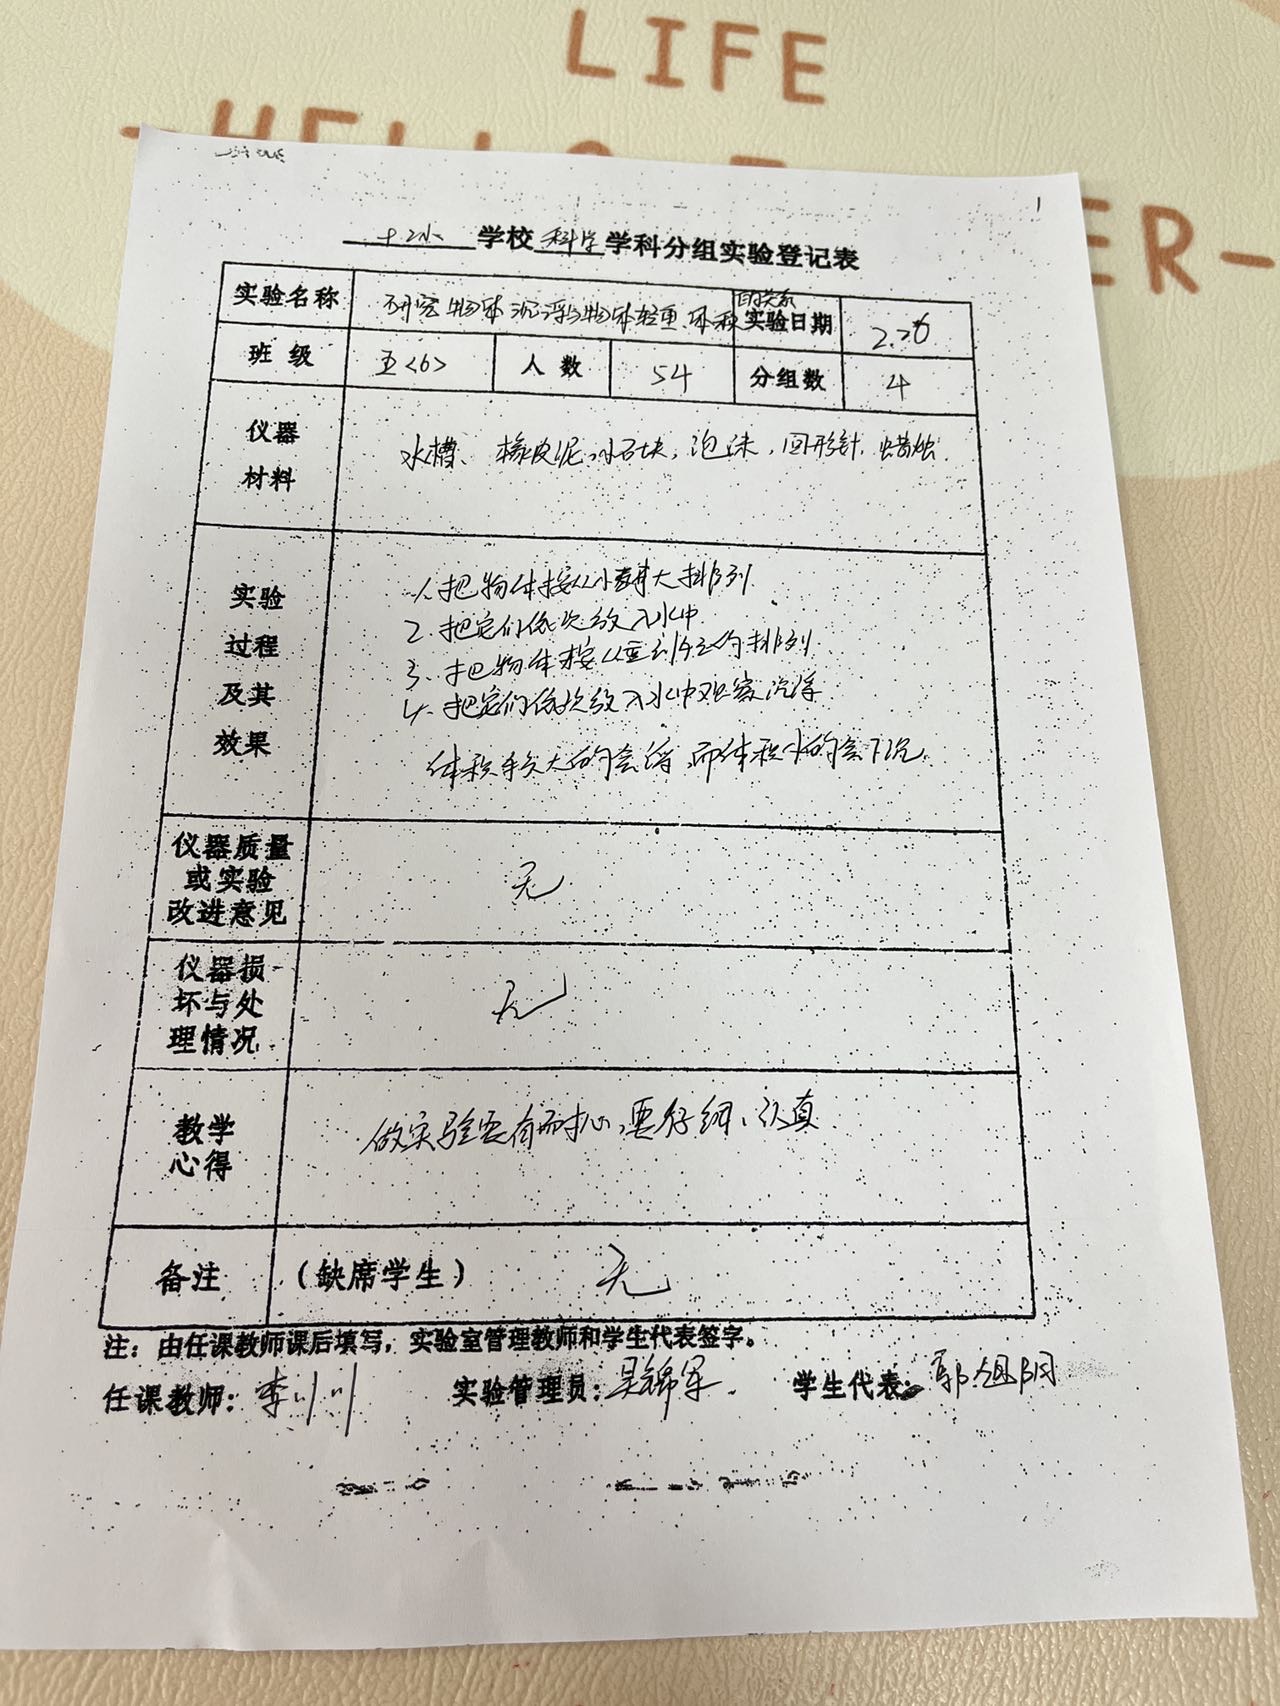 LIFE
学校科学学科分组实验登记表
实验名称 研究物体沉浮与物体轻重、体积的关系 实验日期 2.26
班级 五<6> 人数 54 分组数 4
仪器材料 水槽、橡皮泥、小石块，泡沫，回形针，蜡烛.
实验过程及其效果
1、把物体按从小到大排列
2、把它们依次放入水中
3、把物体按从重到轻的排列
4、把它们依次放入水中观察沉浮
体积大的会浮，而体积小的会下沉.
仪器质量或实验改进意见 无
仪器损坏与处理情况 无
教学心得 做实验要有耐心，要仔细、认真
备注 （缺席学生） 无
注：由任课教师课后填写，实验室管理教师和学生代表签字。
任课教师：李 实验管理员：吴锦军 学生代表：郭旭阳